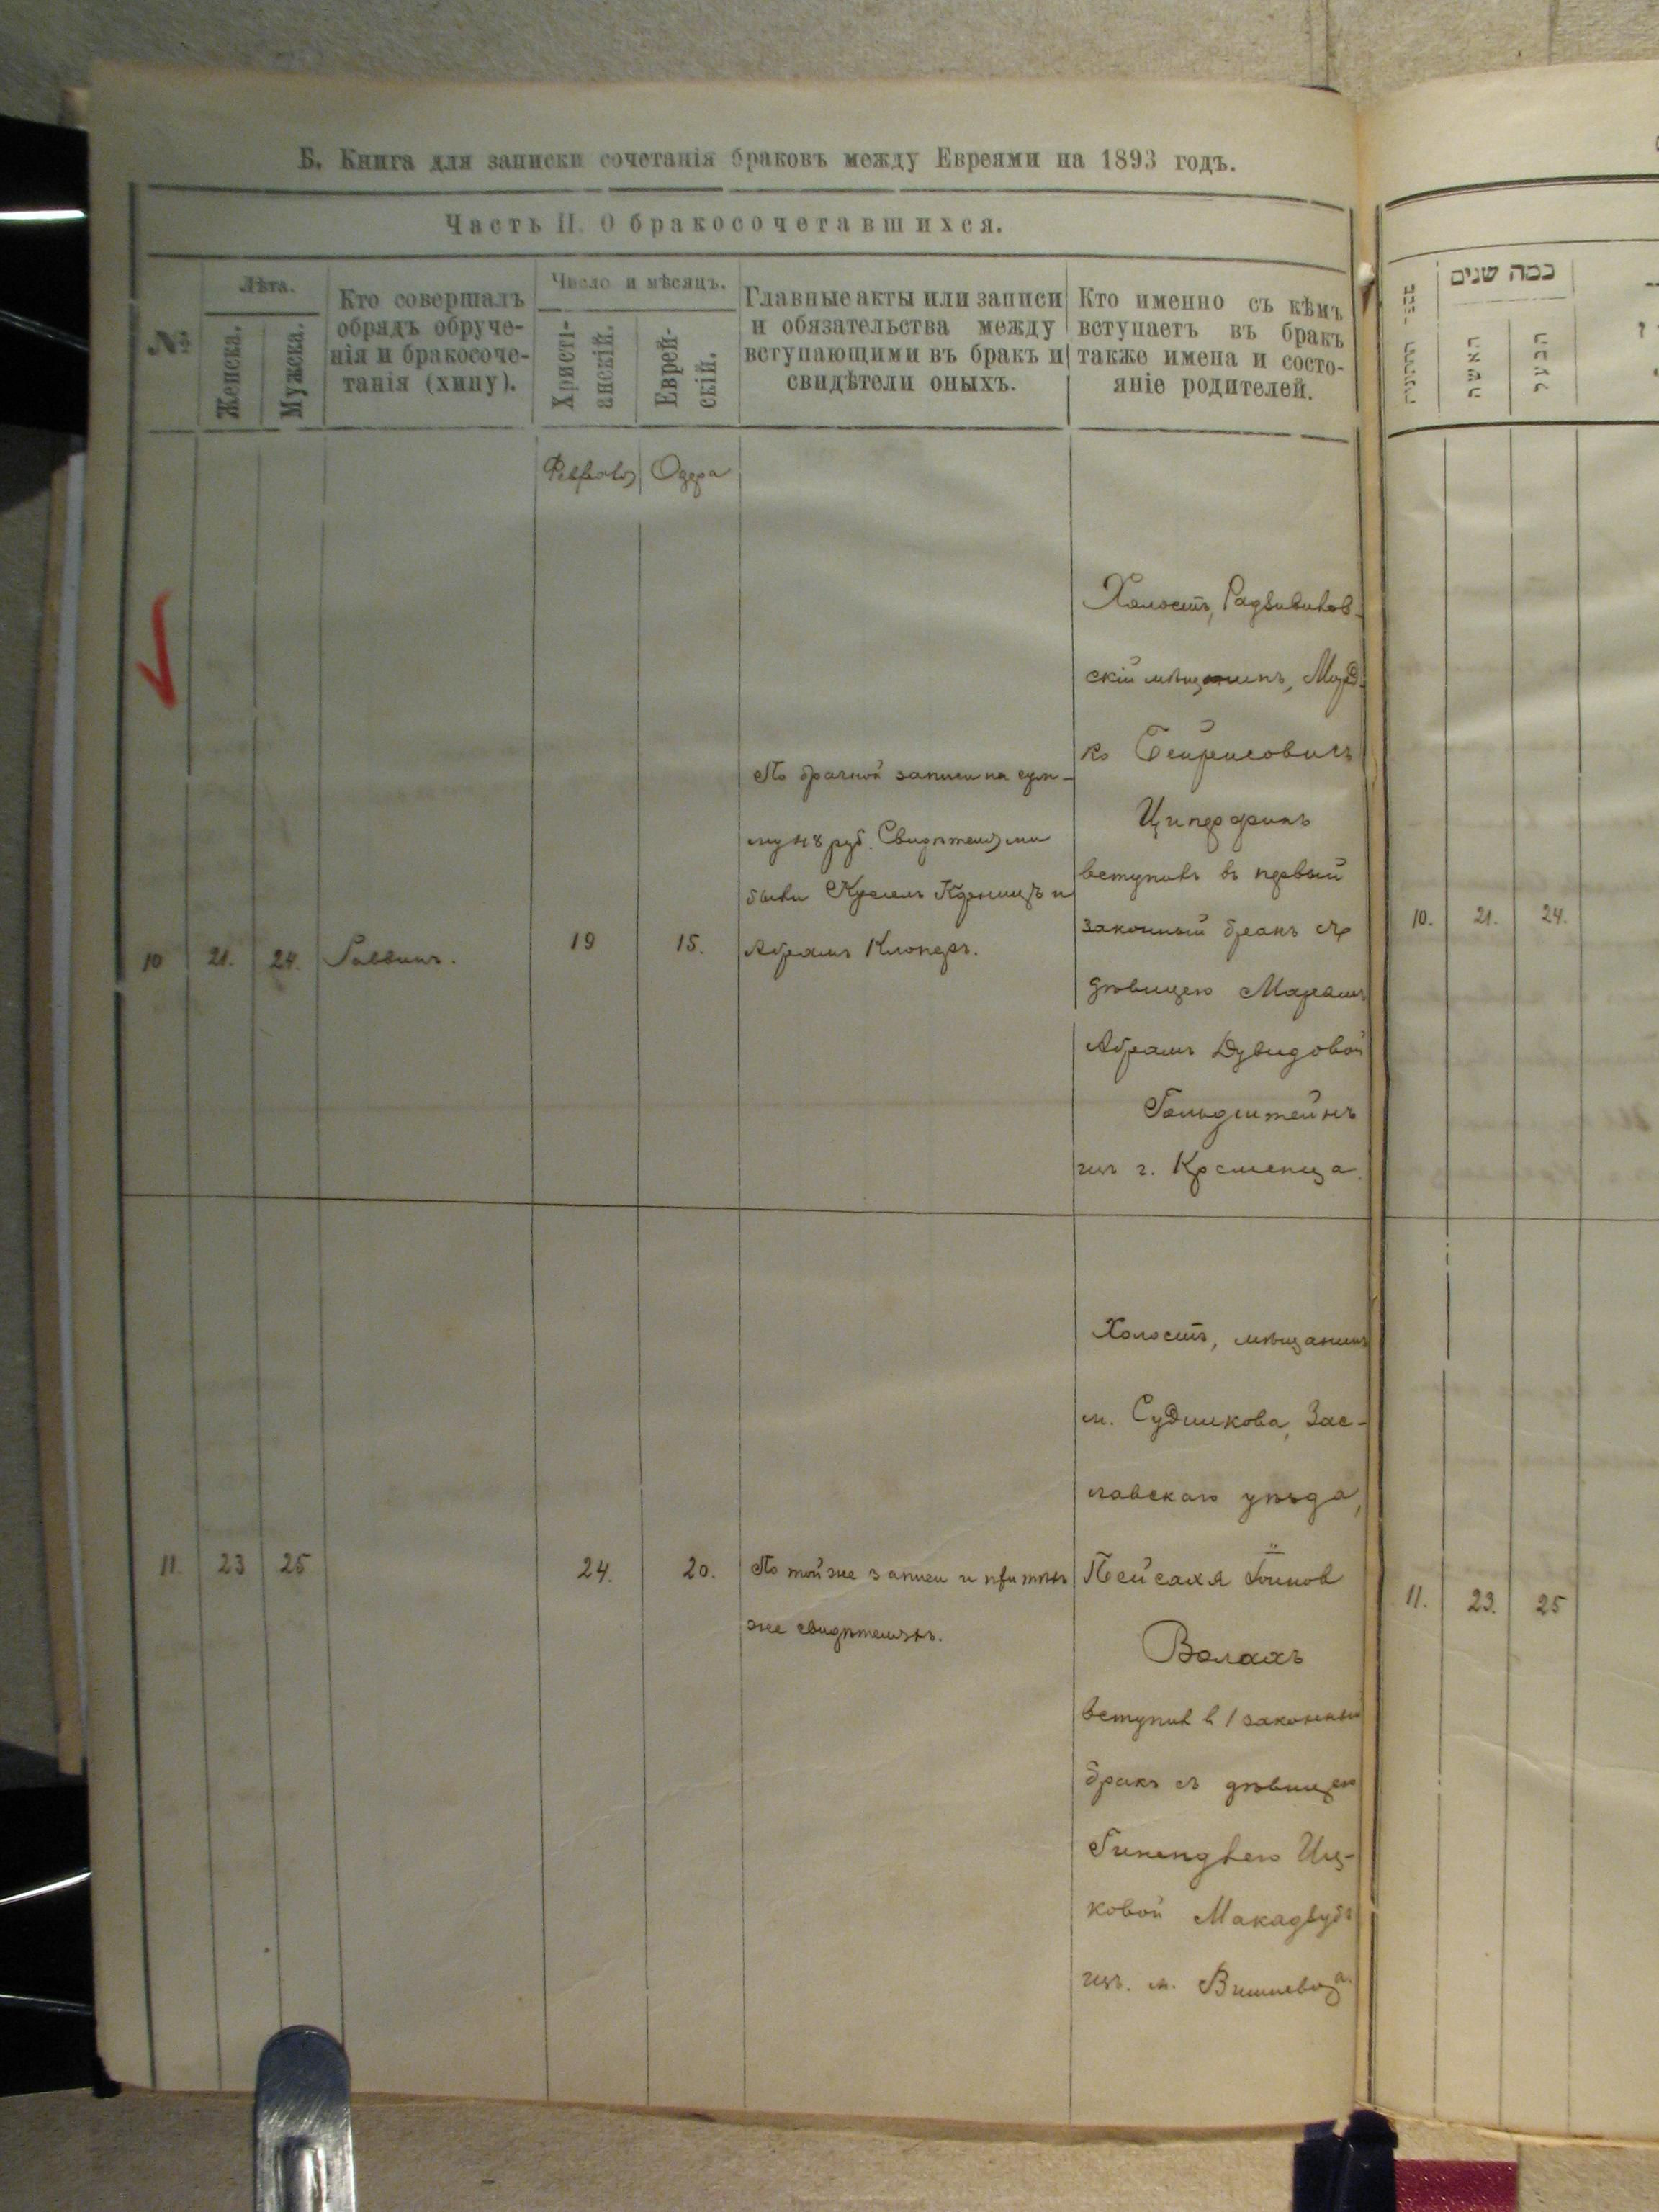 Б. Книга для записки сочетанія браковъ между Евреями на 1893 годъ.
Часть II. О бракосочетавшихся.
№
Лѣта.
Женска.
Мужска.
Кто совершалъ
обрядъ обруче-
нія и бракосоче-
танія (хипу).
Число и мѣсяцъ.
Христі-
анскій.
Еврей-
скій.
Главные акты или записи
и обязательства между
вступающими въ бракъ и
свидѣтели оныхъ.
Кто именно съ кѣмъ
вступаетъ въ бракъ
также имена и состо-
яніе родителей.
Одера
10
21.
24.
Раввинъ.
19
15.
По брачной записи на сум-
му 48 руб. Свидѣтелями
были
Абрамъ Клоперъ.
Холостъ, Радзивилов-
скій мѣщанинъ, Морд-
ко Бейрисовичъ
Циперфинъ
вступилъ въ первый
законный бракъ съ
дѣвицею Маріамъ
Абрамъ Дувидовой
Гольдштейнъ
изъ г. Кременца.
11.
23
25
24.
20.
По той же записи и при тѣхъ
же свидѣтеляхъ.
Холостъ, мѣщанинъ
м. Судилкова, Зас-
лавскаго уѣзда,
Пейсахя
Волахъ
вступилъ въ 1 законный
бракъ съ дѣвицею
Гинендлею Иц-
ковой
изъ м. Вишневца.
כמה שנים
האשה
הבעל
10.
21.
24.
11.
23.
25